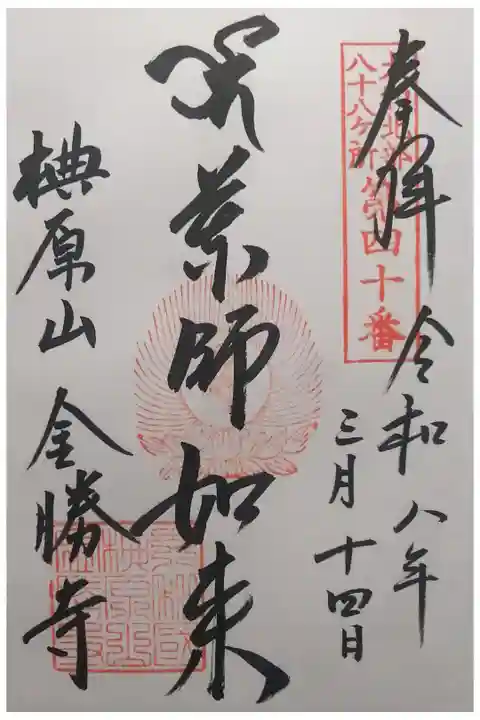 奉拝
令和八年
三月十四日
八十八ヶ所
第四十番
薬師如来
椣原山
金勝寺